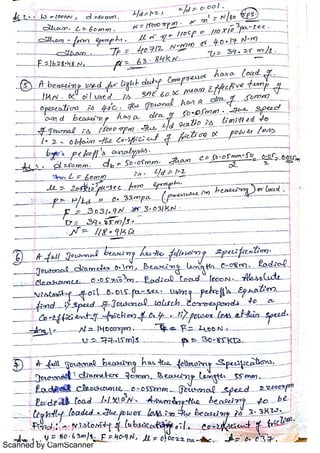 W = 1000N, d = 50mm. L/d = 1.2, c/d = 0.001.
L = 60mm. N = 1100rpm
Then, from graph. = 110 x 10 pa-sec.
Then TF = 40912 N-mm or 40.17 N-m
F = 1628.42 N, P = 63.84 KW U = 39.25 m/s.
⑤ A bearing used for light duty Compressor has a load of
1KN. oil used is SAE 60 & mean Effective temp of
operation is 40°C. The Journal has a dia of 50mm
and bearing has a dia of 50.05mm. The speed
of Journal is 15000rpm. The L/d ratio is limited to
1.2. obtain the Co-efficient of friction & power loss
by petroff's analysis.
d = 50mm. db = 50.05mm. Then c = 50.05mm-50
L = 60mm in L/d = 1.2
pa-sec from graph.
P = W/Ld = 0.33mpa (pressure in bearing) or load.
F = 3031.9N or 3.031KN
U = 39.25m/s.
N = 118.9KW
⑥ A full Journal bearing has the following Specification.
Journal diameter 0.1m, bearing length 0.08m. Radial
Clearance 0.05x10 m. Radial load 1000N. Absolute
Viscosity of oil 0.015 pa-sec. using petroff's Equation
find. i) speed of Journal which Corresponds to a
Co-efficient of friction of 0.4. ii) power loss at this speed.
Ans:- N = 14000rpm. F = 400N.
U = 77.15m/s P = 30.85KW.
⑦ A full Journal bearing has the following Specifications.
Journal diameter 70mm. Bearing length 55mm.
Radial Clearance 0.055mm. Journal speed 22000rpm
Radial load 1.1x10 N. Assuming the bearing to be
lightly loaded. The power loss in the bearing is 3.3KW.
Find: viscosity of lubricating oil. co-efficient of friction.
U = 80.63m/s. F = 40.9N, = 0.0022 = 0.037.
Scanned by CamScanner